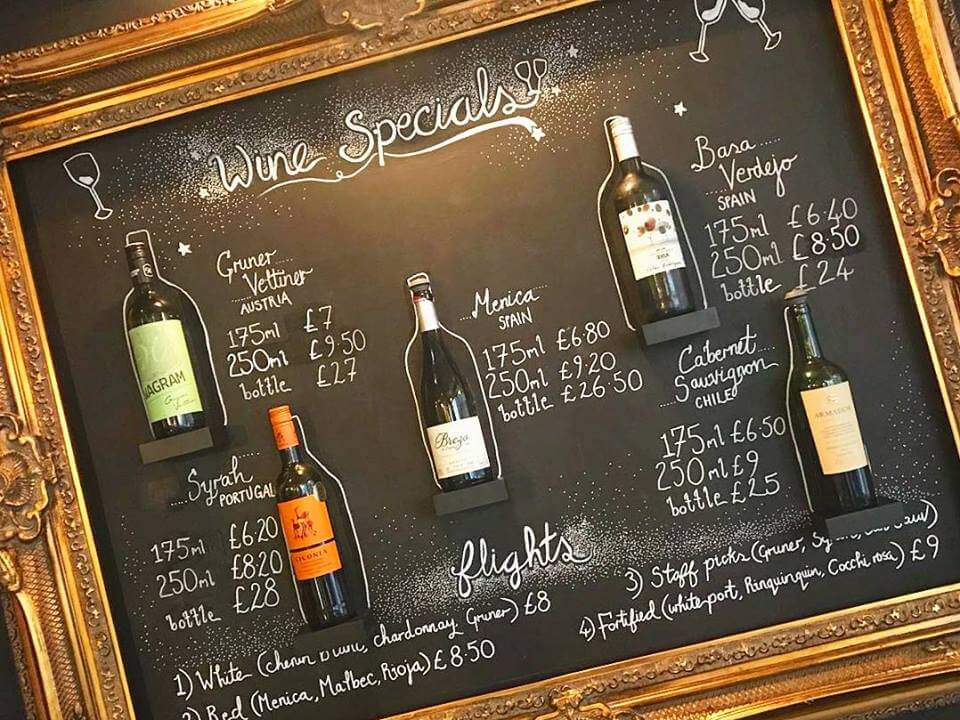 Wine Specials
Gruner
Vettiner
AUSTRIA
175ml £7
250ml £9.50
bottle £27
AGRAM
Menica
SPAIN
175ml £6.80
250ml £9.20
bottle £26.50
Breza
Basa
Verdejo
SPAIN
175ml £6.40
250ml £8.50
bottle £24
BASA
Syrah
PORTUGAL
175ml £6.20
250ml £8.20
bottle £28
CICONIA
Cabernet
Sauvignon
CHILE
175ml £6.50
250ml £9
bottle £25
ARMADOR
flights
1) White (chenin blanc, chardonnay, Gruner) £8
2) Red (Menica, Malbec, Rioja) £8.50
3) Staff picks (Gruner,
4) Fortified (white port, Rinquinquin, Cocchi rosa) £9